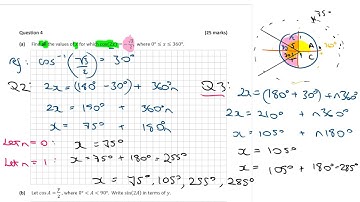 Question 4 (25 marks)
(a) Find all the values of x for which cos(2x) = -√3/2, where 0° ≤ x ≤ 360°.
75°
A
C
30°
ref: cos⁻¹(√3/2) = 30°
Q2: 2x = (180° - 30°) + 360°n
2x = 150° + 360°n
x = 75° + 180°n
Let n = 0: x = 75°
Let n = 1: x = 75° + 180° = 255°
Q3:
2x = (180° + 30°) + n360°
2x = 210° + n360°
x = 105° + n180°
x = 105°
x = 105° + 180° = 285°
x = 75°, 105°, 255°, 285°
(b) Let cos A = y/2, where 0° < A < 90°. Write sin(2A) in terms of y.